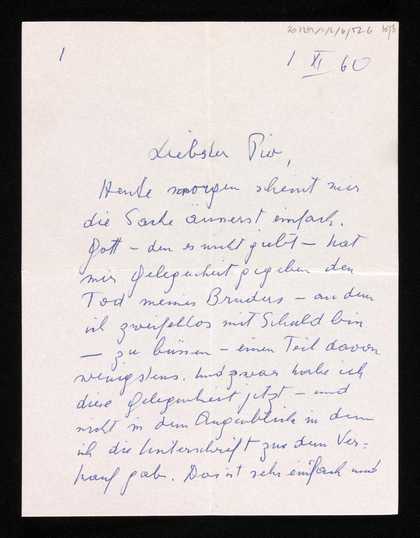 1
1 XI 60
Liebster Pio,
Heute morgen scheint mir
die Sache äusserst einfach.
Gott – den es nicht giebt – hat
mir Gelegenheit gegeben den
Tod meines Bruders – an dem
ich zweifellos mit Schuld bin
– zu büssen – einen Teil davon
wenigstens. Und zwar habe ich
diese Gelegenheit jetzt – und
nicht in dem Augenblick in dem
ich die Unterschrift zu dem Ver=
kauf gab. Das ist sehr einfach und